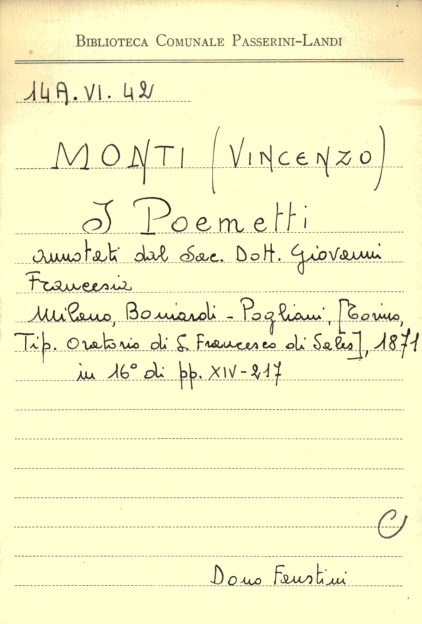 BIBLIOTECA COMUNALE PASSERINI-LANDI
14A.VI.42
MONTI (VINCENZO)
I Poemetti
annotati dal Sac. Dott. Giovanni
Francesia
Milano, Boniardi - Pogliani, [Torino,
Tip. Oratorio di S. Francesco di Sales], 1871
in 16° di pp. XIV-217
C
Dono Faustini